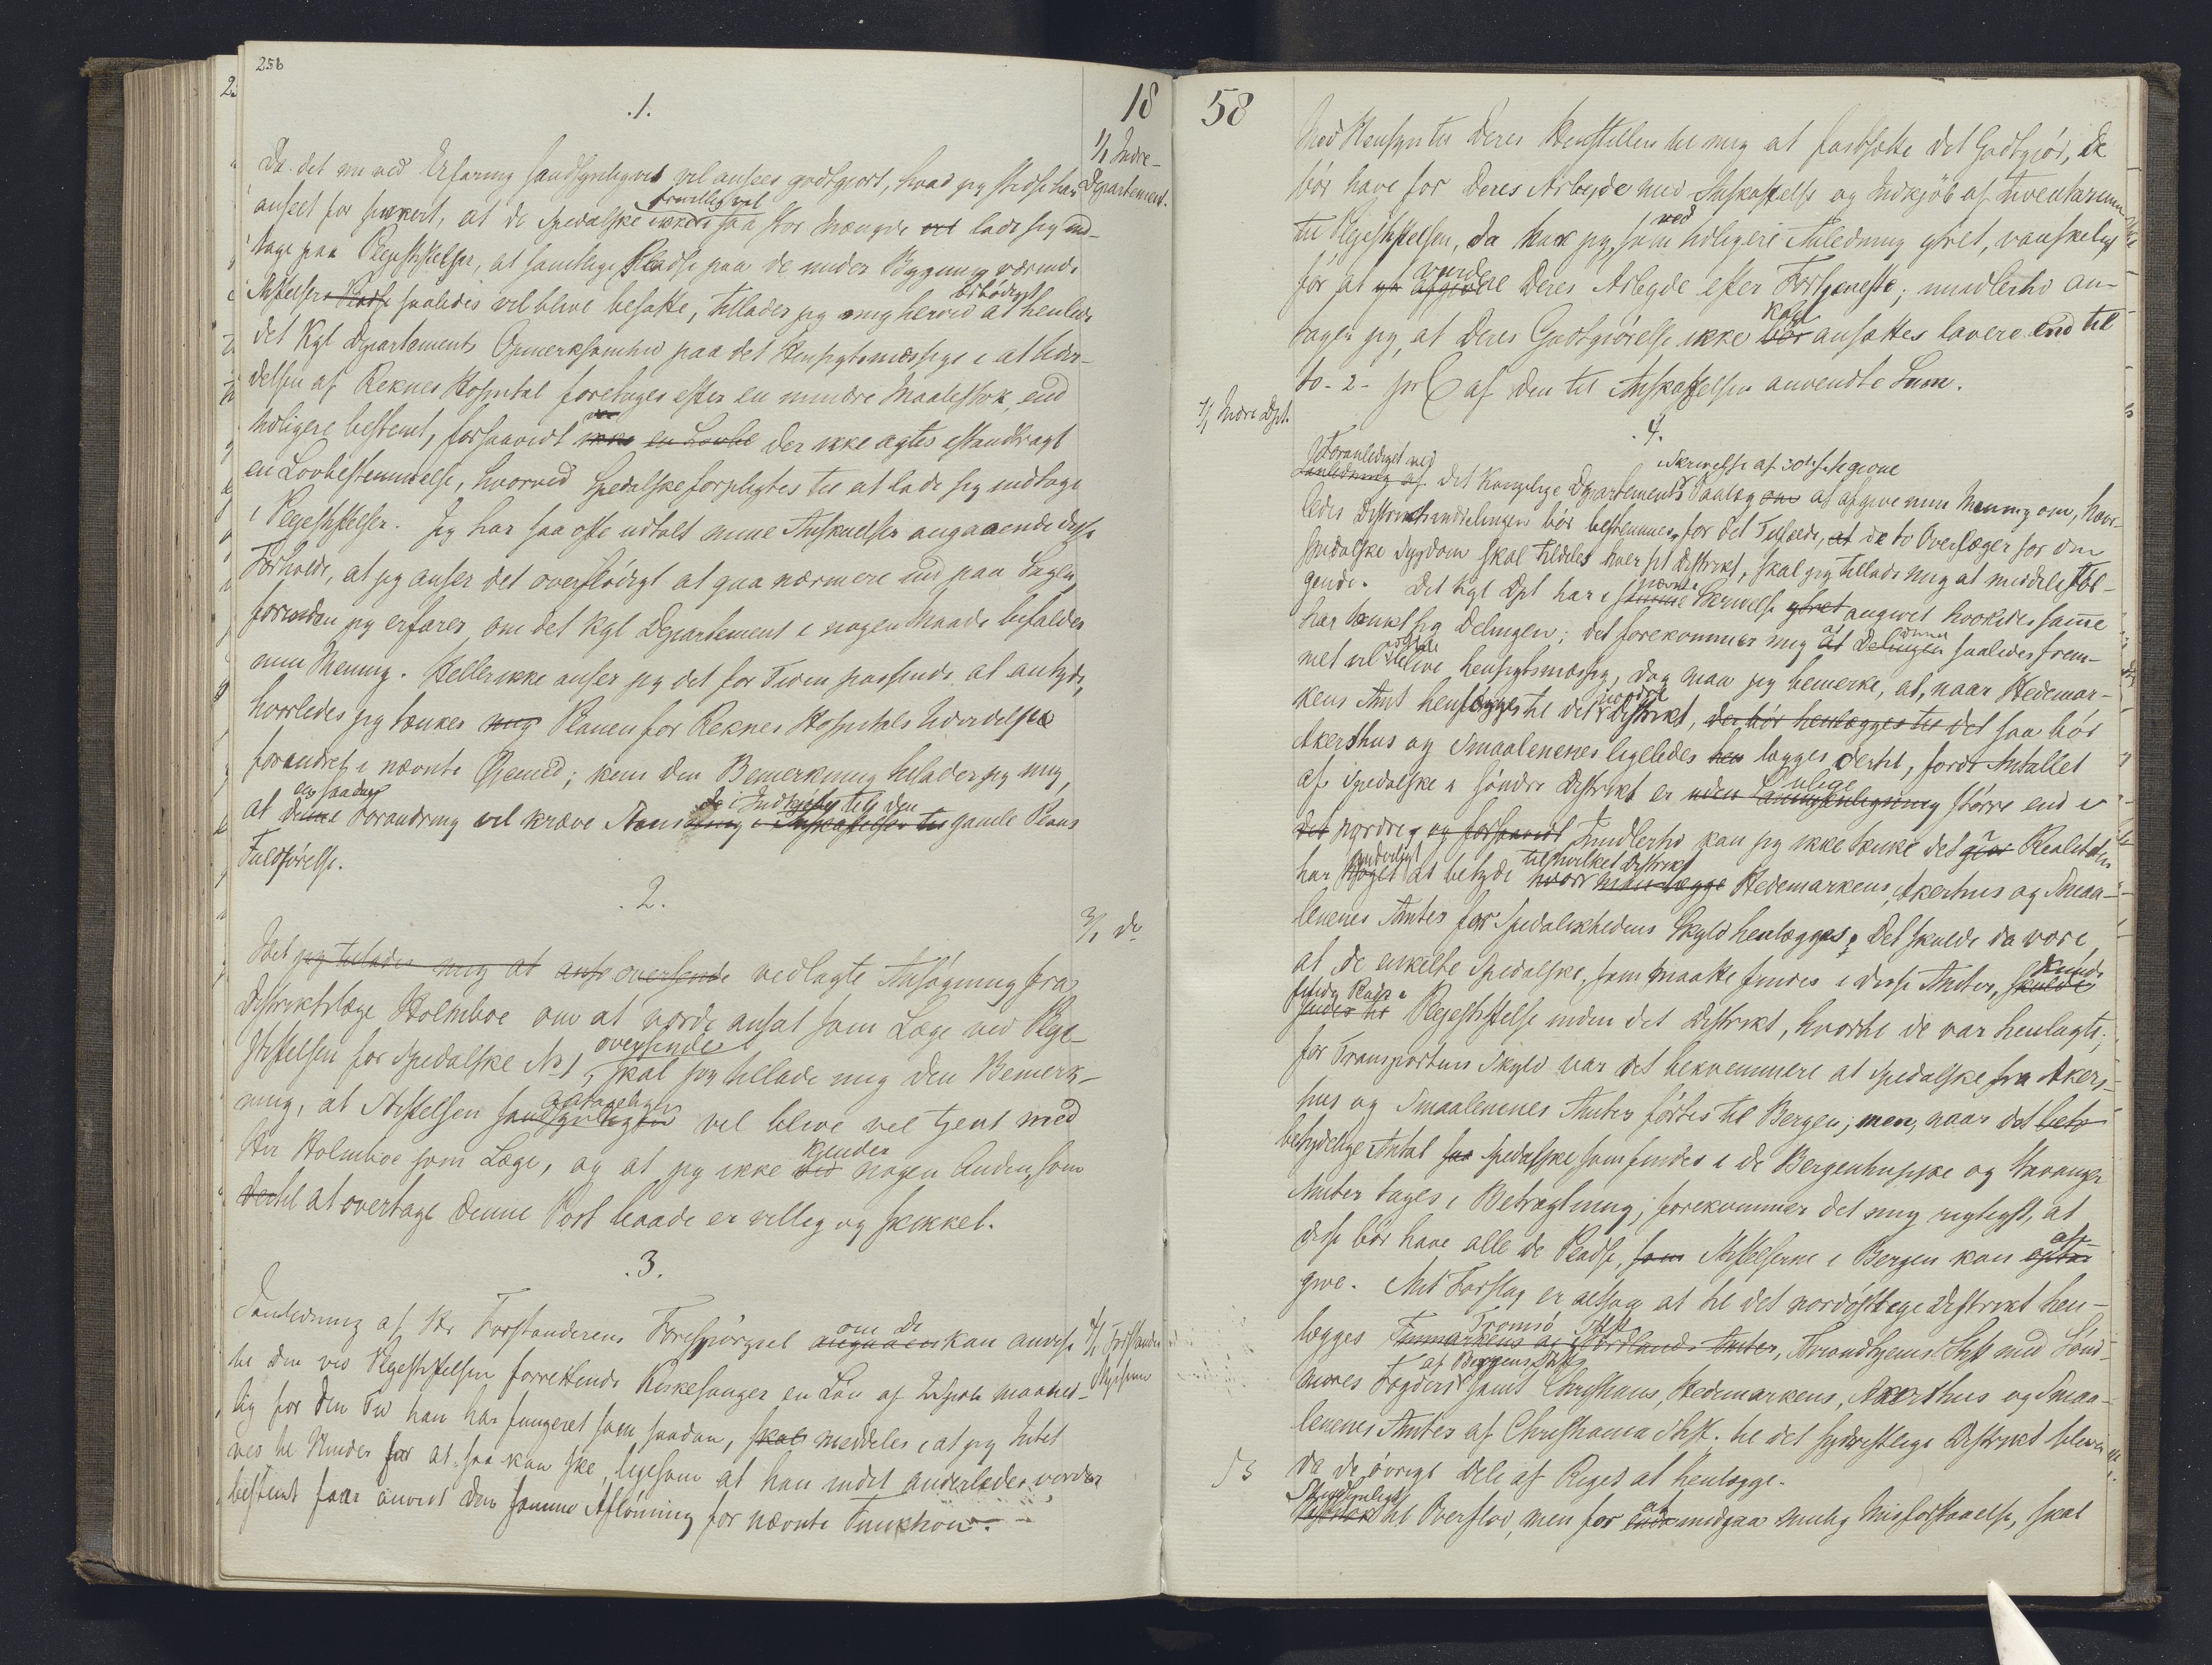 256
.1.
18
1/1 Indre-
Departement.
Da det nu ved Erfaring sandsynligvis vil ansees godtgjort, hvad jeg stedse har
frivilligt vil
anseet for sikkert, at de Spedalske ikke i saa stor Mængde vil lade sig ind-
tage paa Plejestiftelser, at samtlige Pladse paa de under Bygning værende
ærbødigst
Stiftelser Pladse saaledes vil blive besatte, tillader jeg mig herved at henlede
det Kgl Departements Opmerksomhed paa det Hensigtsmæssige i at Udvi-
delsen af Reknes Hospital foretages efter en mindre Maalestok, end
tidligere bestemt, forsaavidt ikke en Lovbe der ikke agtes istandbragt
en Lovbestemmelse, hvorved Spedalske forpligtes til at lade sig indtage
i Plejestiftelser. Jeg har saa ofte udtalt mine Anskuelser angaaende disse
Forholde, at jeg anser det overflødigt at gaa nærmere ind paa Sagen,
forinden jeg erfarer, om det Kgl Departement i nogen Maade bifalder
min Mening. Heller ikke anser jeg det for Tiden passende at antyde,
hvorledes jeg tænker mig Planen for Reknes Hospitals Udvidelse
forandret i nævnte Øiemed; kun den Bemerkning tillader jeg mig,
en saadan
at denne Forandring vil kræve
de i Indkjøb til den
gamle Plans
Fuldførelse.
.2.
3/1 do
Idet jeg tillader mig at oversende vedlagte Ansøgning fra
Distriktslæge Holmboe om at vorde ansat som Læge ved Pleje-
oversendes
stiftelsen for Spedalske No 1, skal jeg tillade mig den Bemerk-
antageligen
ning, at Stiftelsen sandsynligvis vil blive vel tjent med
Kjender
Hr Holmboe som Læge, og at jeg ikke ved nogen Anden, som
dertil at overtage denne Post baade er villig og skikket.
.3.
4/1
I anledning af Hr Forstanderens Forespørgsel angaaen om De kan anvise
til den ved Plejestiftelsen forrettende Kirkesanger en Løn af maaned-
lig for den Tid han har fungeret som saadan, skal meddeles at jeg Intet
ved til Hinder for at saa kan ske, ligesom at han indtil anderledes vorder
bestemt faar anvist den samme Aflønning for nævnte Funktion.
58
Med Hensyn til Deres Henstillen til mig at fastsætte det Godtgjør, De
bør have for Deres Arbejde med Anskaffelse og Indkjøb af Inventarium
ved
til Plejestiftelsen, da har jeg, som tidligere Anledning ytret, vanskeligt
vurdere
for at afgive Deres Arbejde efter Fortjeneste; imidlertid an-
kan
tager jeg, at Deres Godtgjørelse ikke bør ansættes lavere end til
to - 2 - prC af den til Anskaffelsen anvendte Sum.
4/1 Indre Dpt.
.4.
Foranlediget ved
i Skrivelse af 30te f. M. givne
I anledning af det Kongelige Departements Paalæg om at afgive min Mening om, hvor-
ledes Distriktsinddelingen bør bestemmes, for det Tilfælde, at de to Overlæger for den
spedalske Sygdom skal tildeles hver sit Distrikt, skal jeg tillade mig at meddele Føl-
nævnte
gende. Det Kgl Dpt har i samme Skrivelse ytret angivet hvorledes samme
har tænkt sig Delingen; det forekommer mig at Delingen saaledes frem-
met vil blive hensigtsmæssig, dog maa jeg bemerke, at, naar Hedemar-
nordre
kens Amt henlægges til det Distrikt, der bør henlægges til det saa bør
Akershus og Smaalenenes ligeledes hen lægges dertil, fordi Antallet
af Spedalske i søndre Distrikt er uden Sammenligning større end i
det nordre, og forsaavidt Imidlertid kan jeg ikke tænke det gjør Realiteten
til hvilket Distrikt
har Noget at betyde hvor man lægge Hedemarkens, Akershus og Smaa-
lenenes Amter for Spedalskhedens Skyld henlægges; det skulde da være,
kunde
at de enkelte Spedalske, som maatte findes i disse Amter, skulde
finde Plads i
Plejestiftelse inden det Distrikt, hvortil de var henlagte;
for Transportens Skyld var det bekvemmere at Spedalske fra Akers-
hus og Smaalenenes Amter førtes til Bergen; men, naar det bety
betydelige Antal Spedalske som findes i de Bergenhusske og Stavanger
Amter tages i Betragtning, forekommer det mig rigtigst, at
disse bør have alle de Pladse, som Stiftelserne i Bergen kan
af-
give. Mit Forslag er altsaa at til det nordøstlige Distrikt hen-
Tromsø Stift
lægges Finmarkens og Nordlands Amter, Throndhjems Stift med Sønd-
af Bergens Stift
møres Fogderi samt Christians, Hedemarkens, Akershus og Smaa-
lenenes Amter af Christiania Stift. til det sydvestlige Distrikt bliver
da de øvrige Dele af Riget at henlægge.
Sandsynligt
til Overflod, men for at undgaa mulig Misforstaaelse, skal